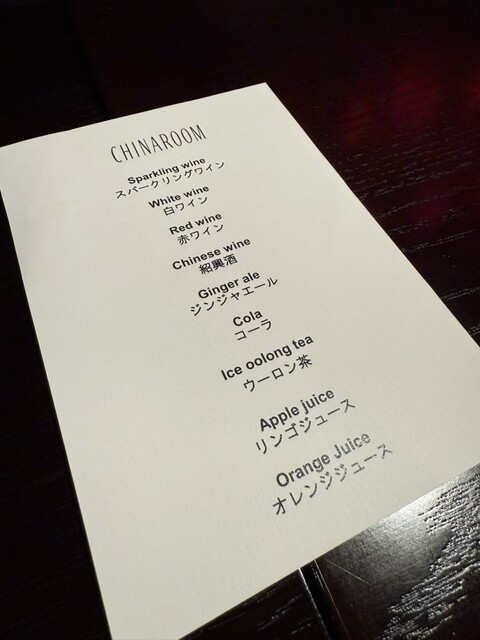 CHINAROOM
Sparkling wine
スパークリングワイン
White wine
白ワイン
Red wine
赤ワイン
Chinese wine
紹興酒
Ginger ale
ジンジャエール
Cola
コーラ
Ice oolong tea
ウーロン茶
Apple juice
リンゴジュース
Orange Juice
オレンジジュース